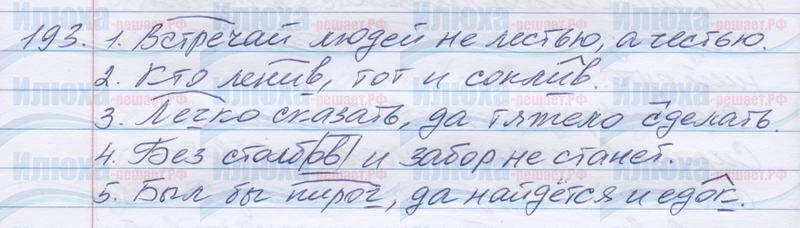 193. 1. Встречай людей не лестью, а честью.
2. Кто ленив, тот и сонлив.
3. Легко сказать, да тяжело сделать.
4. Без столбов и забор не станет.
5. Был бы пирог, да найдётся и едок.